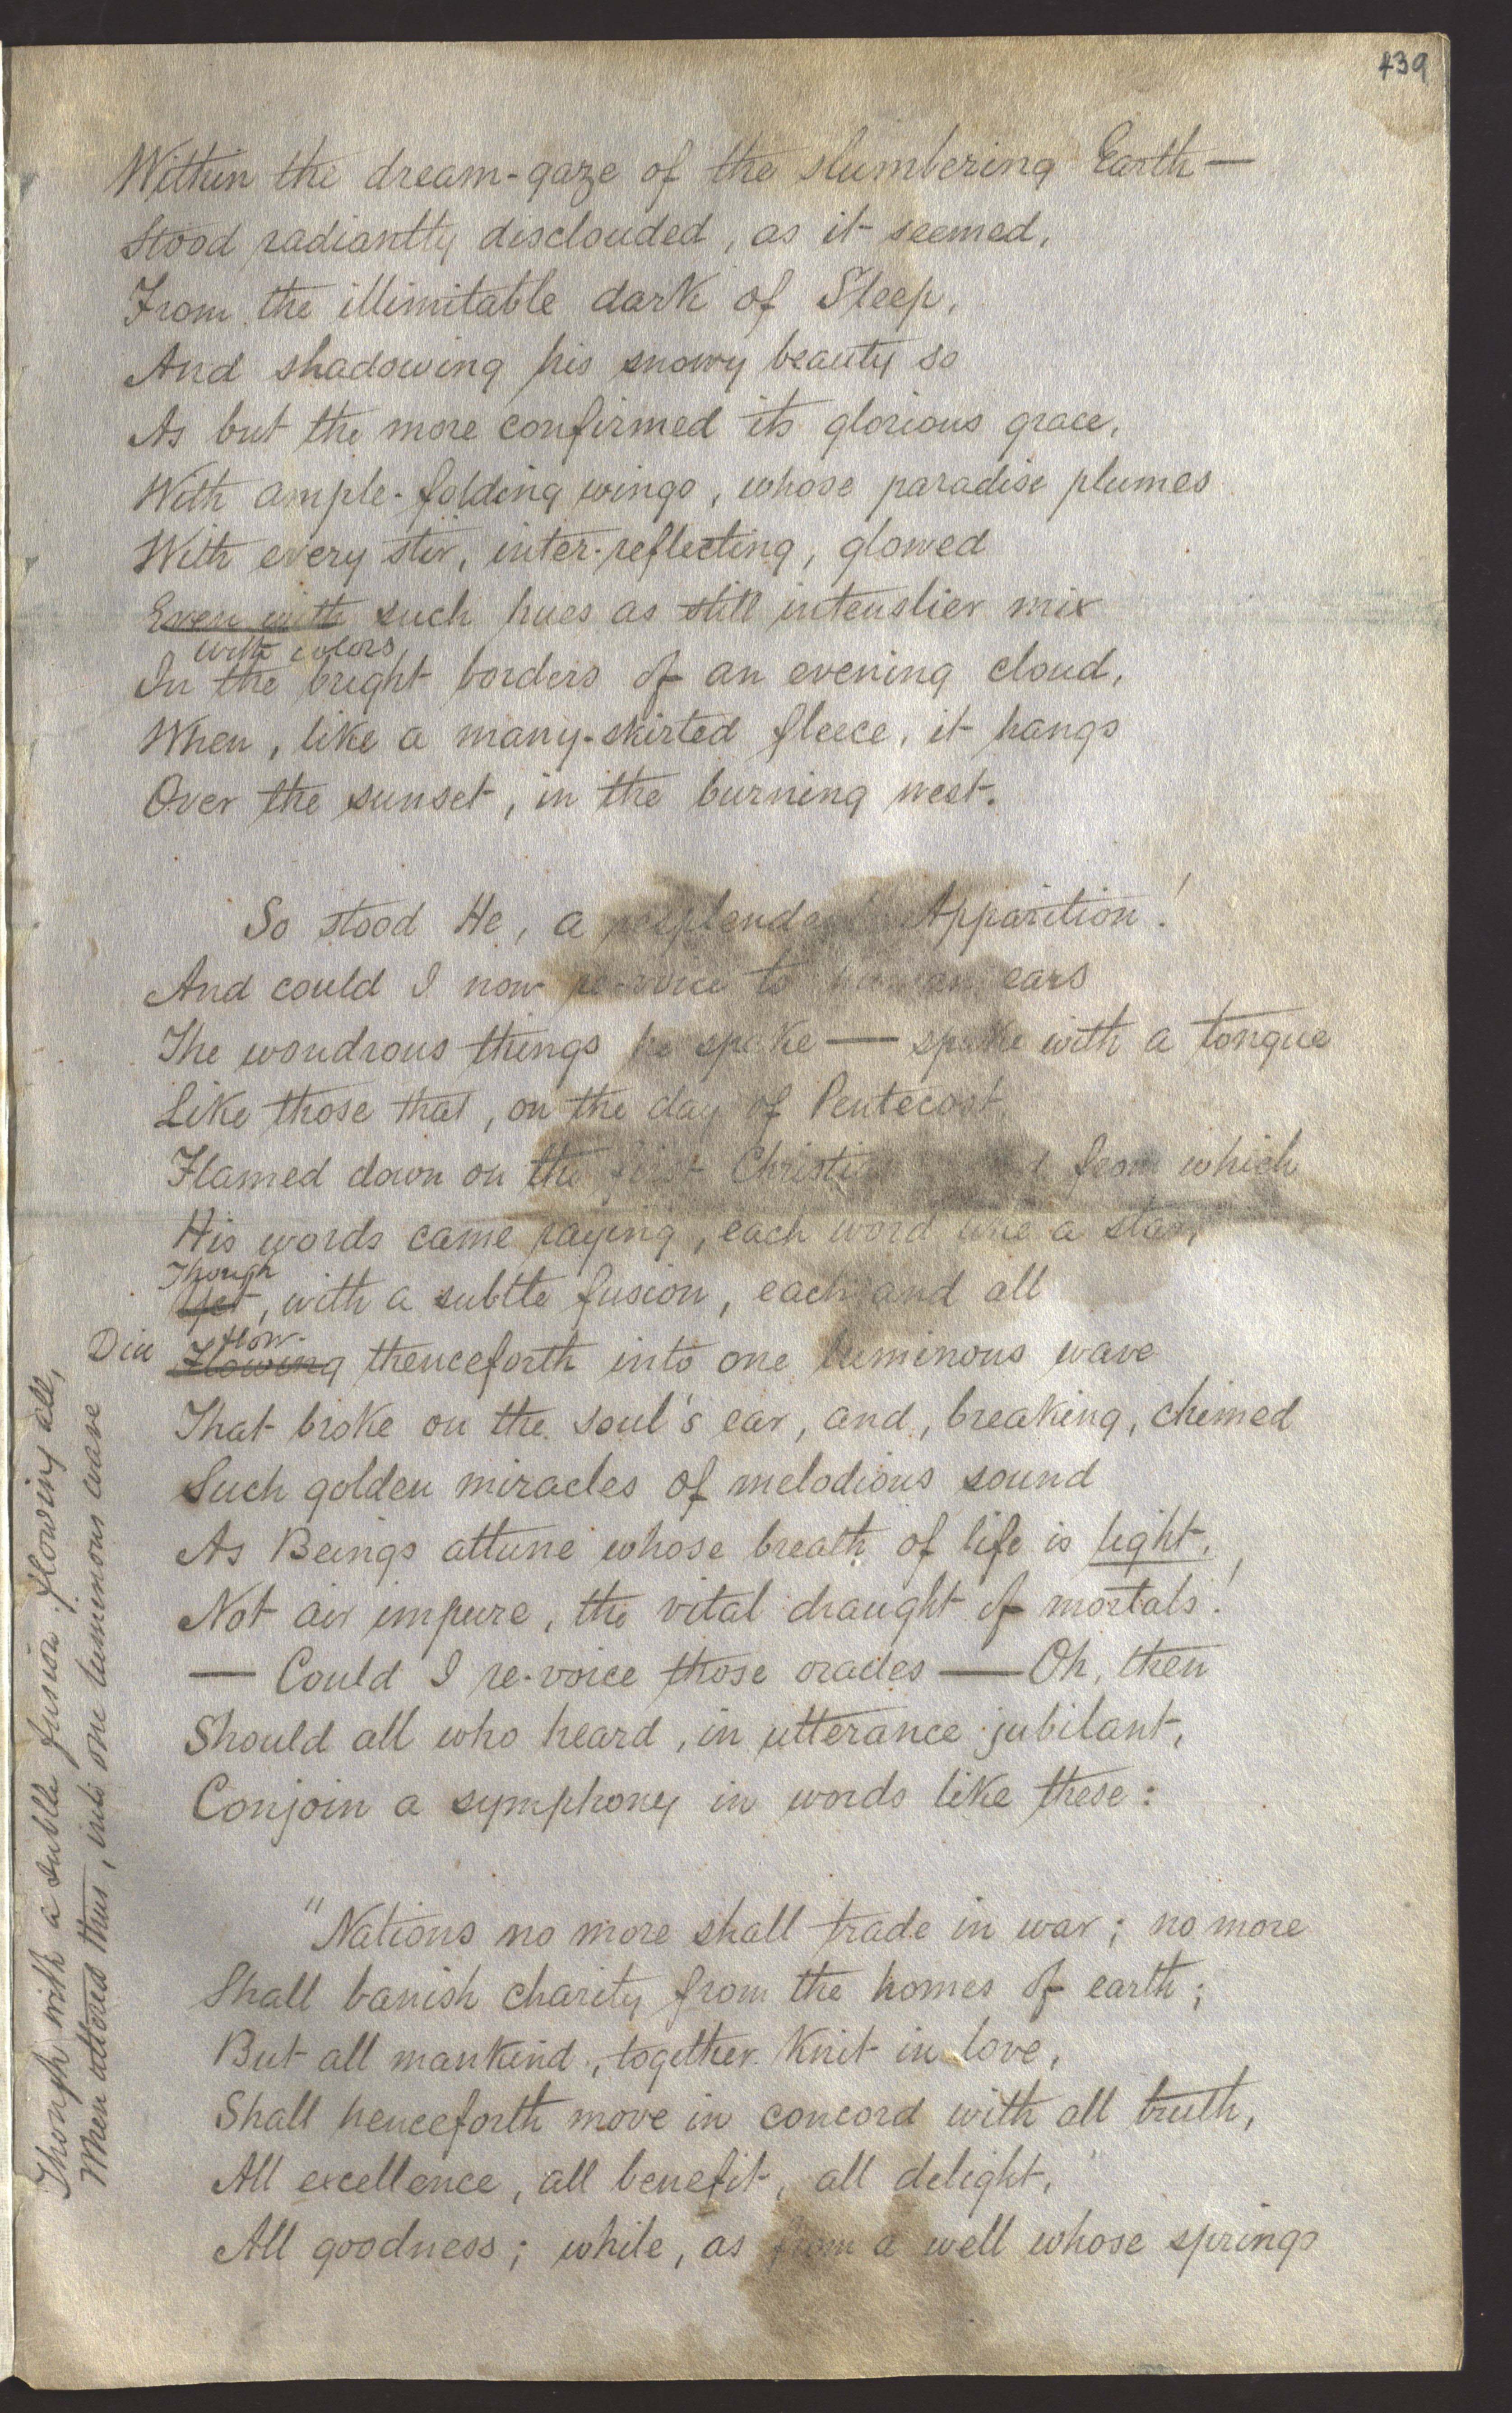 439
Within the dream-gaze of the slumbering Earth —
Stood radiantly disclouded, as it seemed,
From the illimitable dark of Sleep,
And shadowing his snowy beauty so
As but the more confirmed its glorious grace,
With ample-folding wings, whose paradise plumes
With every stir, inter-reflecting, glowed
Even with such hues as still intenslier mix
with colors
In the bright borders of an evening cloud,
When, like a many-skirted fleece, it hangs
Over the sunset, in the burning west.
So stood He, a resplendent Apparition!
And could I now re-voice to human ears
The wondrous things he spoke — spoke with a tongue
Like those that, on the day of Pentecost,
Flamed down on the first Christians from which
His words came raying, each word like a star,
Though
Yet, with a subtle fusion, each and all
Did flow
Flowing thenceforth into one luminous wave
That broke on the soul's ear, and, breaking, chimed
Such golden miracles of melodious sound
As Beings attune whose breath of life is light,
Not air impure, the vital draught of mortals!
— Could I re-voice those oracles — Oh, then
Should all who heard, in utterance jubilant,
Conjoin a symphony in words like these:
"Nations no more shall trade in war; no more
Shall banish charity from the homes of earth;
But all mankind, together knit in love,
Shall henceforth move in concord with all truth,
All excellence, all benefit, all delight,
All goodness; while, as from a well whose springs
Though with a subtle fusion flowing all,
When uttered thus, into one luminous wave